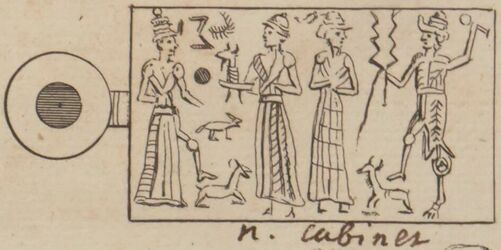 n. cabinet